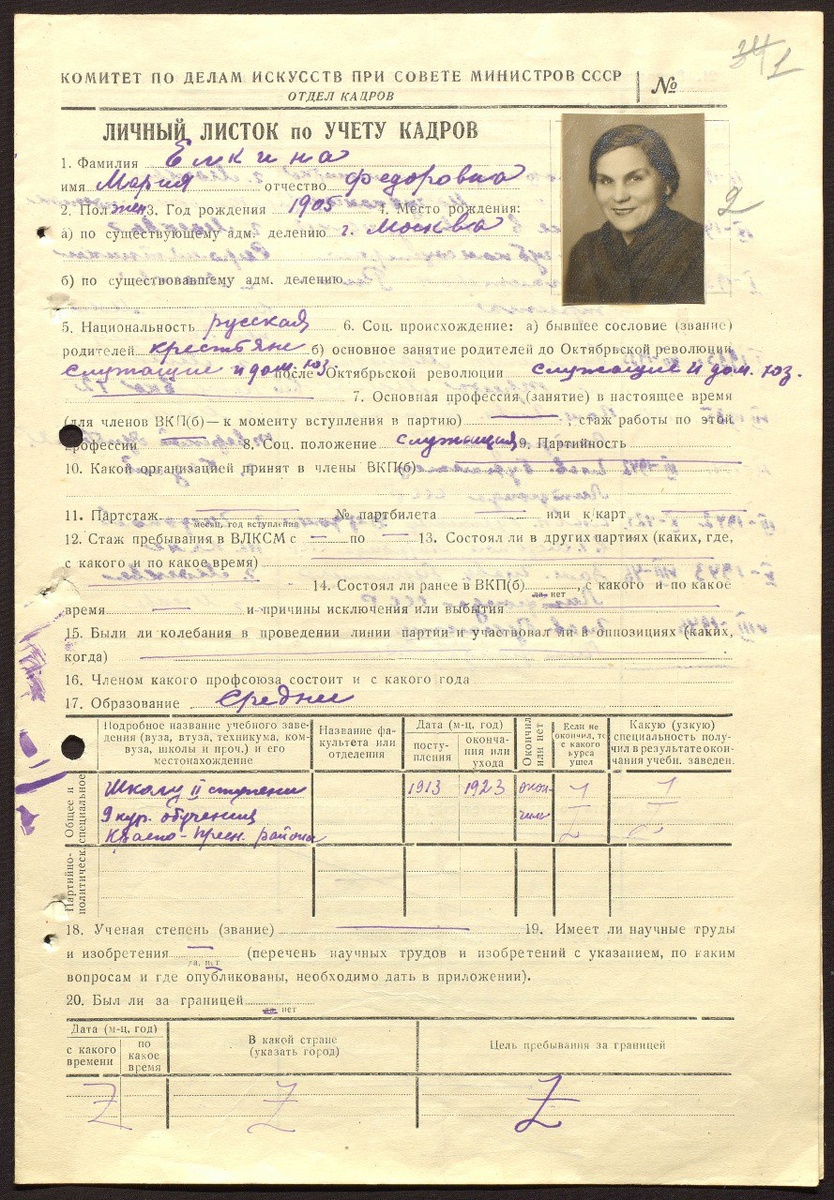 341
КОМИТЕТ ПО ДЕЛАМ ИСКУССТВ ПРИ СОВЕТЕ МИНИСТРОВ СССР
ОТДЕЛ КАДРОВ
№
ЛИЧНЫЙ ЛИСТОК по УЧЕТУ КАДРОВ
1. Фамилия Емкина
имя Мария отчество Федоровна
2
2. Пол жен 3. Год рождения 1905 4. Место рождения:
а) по существующему адм. делению г. Москва
б) по существовавшему адм. делению
5. Национальность русская 6. Соц. происхождение: а) бывшее сословие (звание)
родителей крестьяне б) основное занятие родителей до Октябрьской революции
служащие и дом. хоз. после Октябрьской революции служащие и дом. хоз.
7. Основная профессия (занятие) в настоящее время
(для членов ВКП(б) — к моменту вступления в партию) — , стаж работы по этой
профессии — 8. Соц. положение служащая 9. Партийность
10. Какой организацией принят в члены ВКП(б) —
11. Партстаж — № партбилета — или к карт —
месяц, год вступления
12. Стаж пребывания в ВЛКСМ с — по — 13. Состоял ли в других партиях (каких, где,
с какого и по какое время) —
— 14. Состоял ли ранее в ВКП(б) , с какого и по какое
да, нет
время — и причины исключения или выбытия —
15. Были ли колебания в проведении линии партии и участвовал ли в оппозициях (каких,
когда) —
16. Членом какого профсоюза состоит и с какого года
17. Образование Среднее
Подробное название учебного заведения (вуза, втуза, техникума, комвуза, школы и проч.) и его местонахождение
Название факультета или отделения
Дата (м-ц, год)
поступления
окончания или ухода
Окончил или нет
Если не окончил, то с какого курса ушел
Какую (узкую) специальность получил в результате окончания учебн. заведен.
Общее и специальное
Школу II ступени 1913 1923 окон-
9 кур. обучения чила
Красно-Пресн. района
Партийно-политическ.
18. Ученая степень (звание) — 19. Имеет ли научные труды
и изобретения — (перечень научных трудов и изобретений с указанием, по каким
да, нет
вопросам и где опубликованы, необходимо дать в приложении).
20. Был ли за границей
да, нет
Дата (м-ц, год)
с какого времени
по какое время
В какой стране (указать город)
Цель пребывания за границей